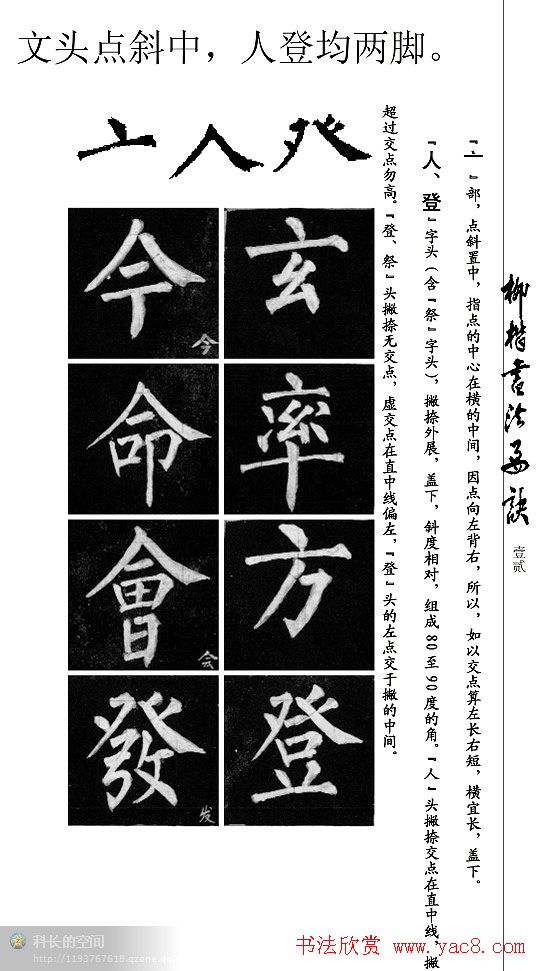 文头点斜中，人登均两脚。
柳楷书法要诀
壹贰
『亠』部，点斜置中，指点的中心在横的中间，因点向左背右，所以，如以交点算左长右短，横宜长，盖下。
『人、登』字头（含『祭』字头），撇捺外展，盖下，斜度相对，组成80至90度的角。『人』头撇捺交点在直中线，撇
超过交点勿高。『登、祭』头撇捺无交点，虚交点在直中线偏左，『登』头的左点交于撇的中间。
亠人癶
玄
率
方
登
今
今
命
會
会
發
发
科长的空间
http://1193767618.qzone.qq.com
书法欣赏 www.yac8.com